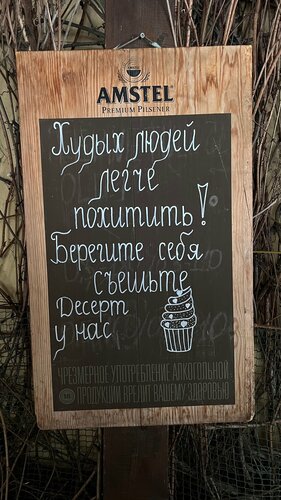 AMSTEL
PREMIUM PILSENER
Худых людей
легче
похитить!
Берегите себя
съешьте
Десерт
у нас
ЧРЕЗМЕРНОЕ УПОТРЕБЛЕНИЕ АЛКОГОЛЬНОЙ
18+ ПРОДУКЦИИ ВРЕДИТ ВАШЕМУ ЗДОРОВЬЮ